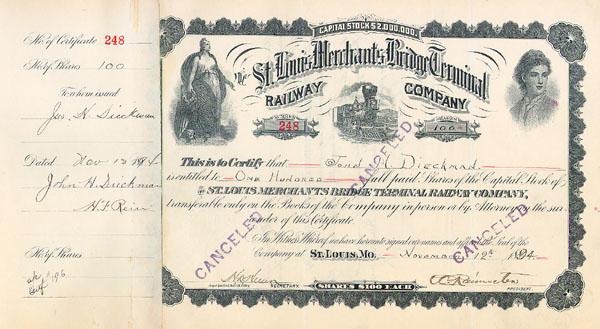 No. of Certificate 248
No. of Shares 100
To whom issued
Dated Nov 12 1894
John H. Dieckman
No. of Shares
CAPITAL STOCK $2,000,000.
The St. Louis Merchants Bridge Terminal
RAILWAY COMPANY
248
100
This is to Certify that John H Dieckman
is entitled to One Hundred full paid Shares of the Capital Stock of
The ST. LOUIS MERCHANTS BRIDGE TERMINAL RAILWAY COMPANY,
transferable only on the Books of the Company in person or by Attorney on the sur-
render of this Certificate.
In Witness Whereof we have hereunto signed our names and affixed the Seal of the
Company at ST. LOUIS, MO. November 12th 1894.
SECRETARY.
PRESIDENT.
SHARES $100 EACH
CANCELED
CANCELED
CANCELED